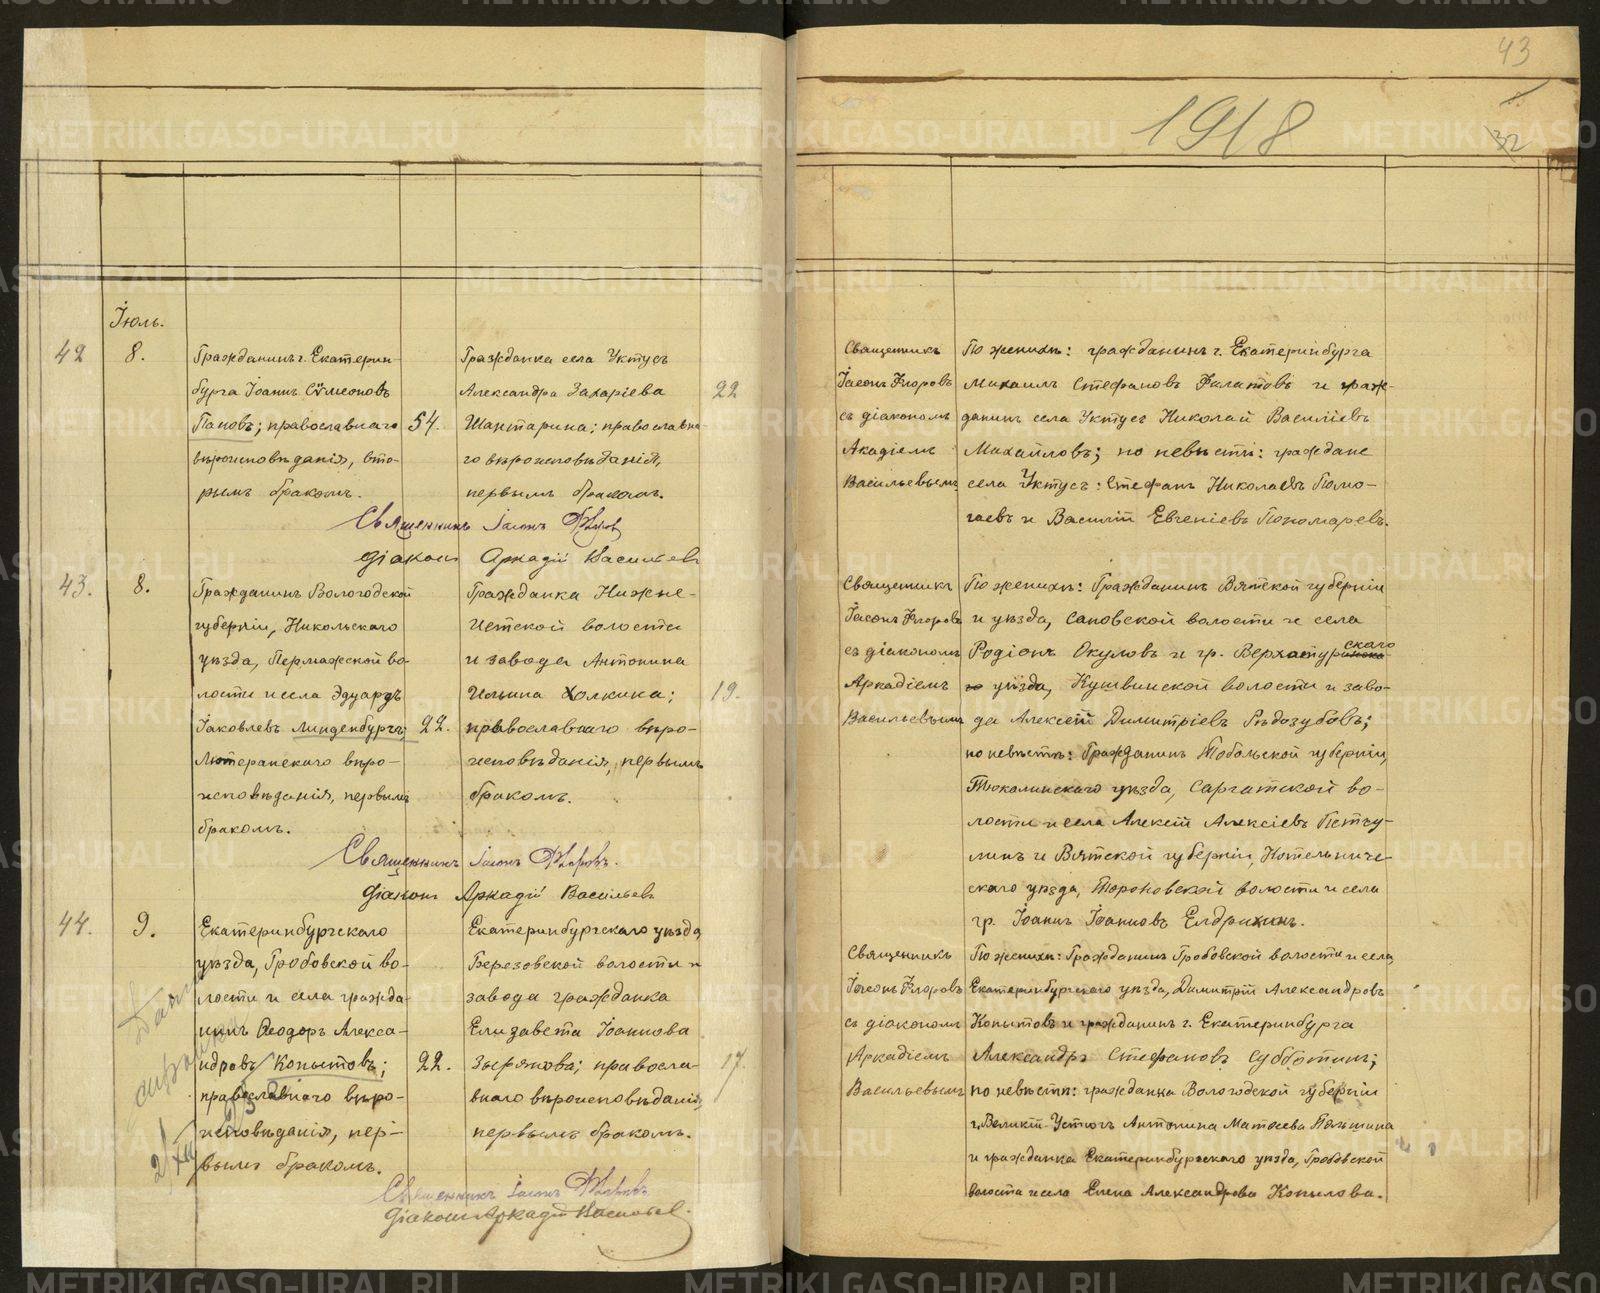 43
1918
32
Іюль.
42
8.
Гражданинъ г. Екатерин-
бурга Іоаннъ Сѵмеоновъ
Поповъ; православнаго
вѣроисповѣданія, вто-
рымъ бракомъ.
54.
Гражданка села Уктусъ
Александра Захаріева
Шантарина; православна-
го вѣроисповѣданія,
первымъ бракомъ.
22
Священникъ Іасонъ
діаконъ Аркадій Васильевъ
Священникъ
Іасонъ
съ діакономъ
Акадіемъ
Васильевымъ
По женихѣ: гражданинъ г. Екатеринбурга
Михаилъ Стефановъ Филатовъ и граж-
данинъ села Уктусъ Николай Василіевъ
Михайловъ; по невѣстѣ: граждане
села Уктусъ: Стефанъ Николаевъ
и Василій Евгеніевъ Пономаревъ.
43.
8.
Гражданинъ Вологодской
губерніи, Никольскаго
уѣзда, Пермажской во-
лости и села Эдуардъ
Іаковлевъ Линденбургъ;
Лютеранскаго вѣро-
исповѣданія, первымъ
бракомъ.
22.
Гражданка Нижне-
Исетской волости
и завода Антонина
Ильина Холкина;
православнаго вѣро-
исповѣданія, первымъ
бракомъ.
19.
Священникъ Іасонъ
діаконъ Аркадій Васильевъ
Священникъ
Іасонъ
съ діакономъ
Аркадіемъ
Васильевымъ
По женихѣ: Гражданинъ Вятской губерніи
и уѣзда, волости и села
Родіонъ Окуловъ и гр. Верхотурскаго
уѣзда, Кушвинской волости и заво-
да Алексій Димитріевъ Рѣдозубовъ;
по невѣстѣ: Гражданинъ Тобольской губерніи,
Тюкалинскаго уѣзда, Саргатской во-
лости и села Алексій Алексіевъ
и Вятской губерніи, Котельниче-
скаго уѣзда, волости и села
гр. Іоаннъ Іоанновъ
44.
9.
Екатеринбургскаго
уѣзда, Гробовской во-
лости и села гражда-
нинъ Ѳеодоръ Алекса-
ндровъ Копытовъ;
православнаго вѣро-
исповѣданія, пер-
вымъ бракомъ.
22.
Екатеринбургскаго уѣзда
Березовской волости и
завода гражданка
Елизавета Іоаннова
Зырянова; правосла-
внаго вѣроисповѣданія,
первымъ бракомъ.
17.
Священникъ Іасонъ
діаконъ Аркадій Васильевъ.
Священникъ
Іасонъ
съ діакономъ
Аркадіемъ
Васильевымъ
По женихѣ: Гражданинъ Гробовской волости и села,
Екатеринбургскаго уѣзда, Димитрій Александровъ
Копытовъ и гражданинъ г. Екатеринбурга
Александръ Стефановъ Субботинъ;
по невѣстѣ: гражданка Вологодской губерніи
г. Великій-Устюгъ Антонина Матѳеева
и гражданка Екатеринбургскаго уѣзда, Гробовской
волости и села Елена Александрова Копылова.
METRIKI.GASO-URAL.RU